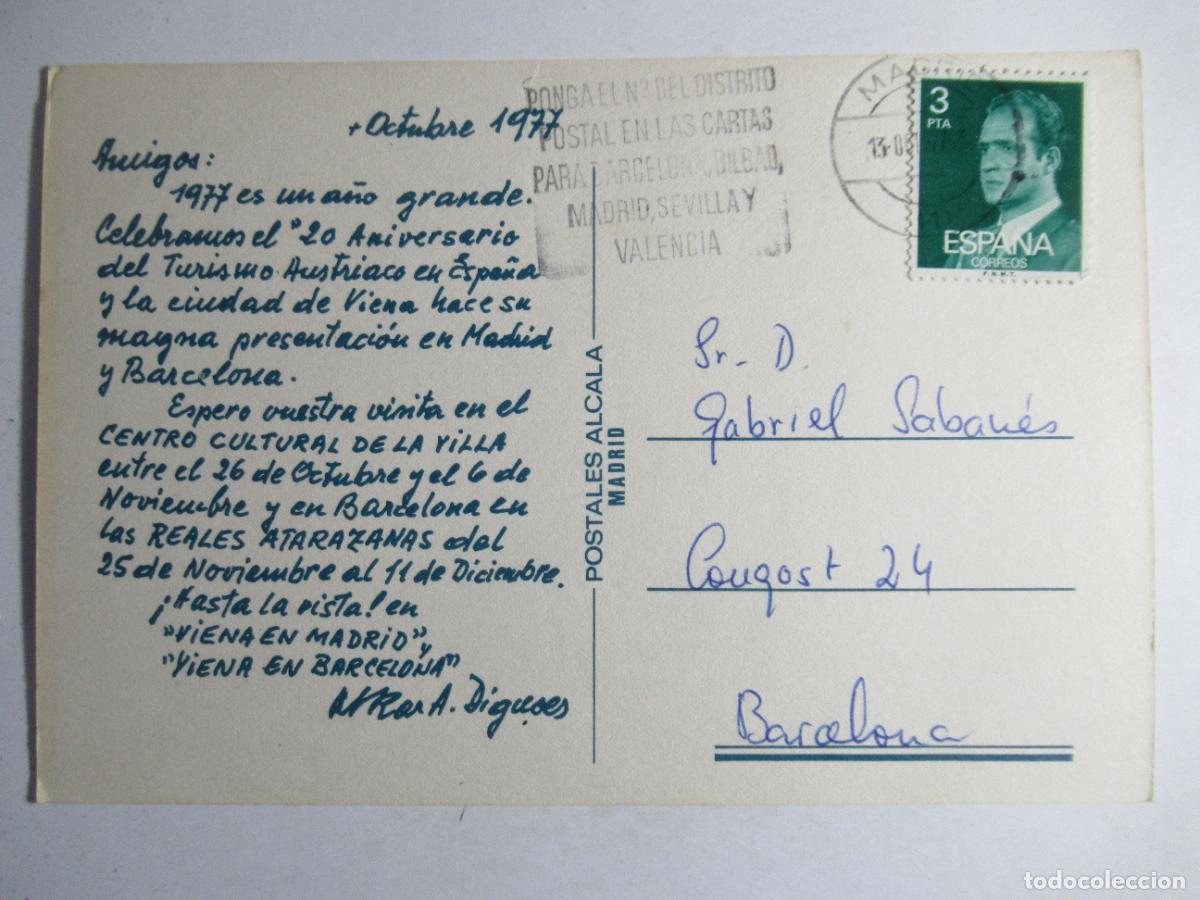 + Octubre 1977
Amigos:
1977 es un año grande.
Celebramos el "20 Aniversario
del Turismo Austriaco en España
y la ciudad de Viena hace su
magna presentación en Madrid
y Barcelona.
Espero vuestra visita en el
CENTRO CULTURAL DE LA VILLA
entre el 26 de Octubre y el 6 de
Noviembre y en Barcelona en
las REALES ATARAZANAS del
25 de Noviembre al 11 de Diciembre.
¡Hasta la vista! en
"VIENA EN MADRID" y
"VIENA EN BARCELONA"
A. Digues
POSTALES ALCALA
MADRID
PONGA EL Nº DEL DISTRITO
POSTAL EN LAS CARTAS
PARA BARCELONA, BILBAO,
MADRID, SEVILLA Y
VALENCIA
3
PTA
ESPAÑA
CORREOS
F.N.M.T.
Sr. D.
Gabriel Sabanés
Congost 24
Barcelona
todocoleccion